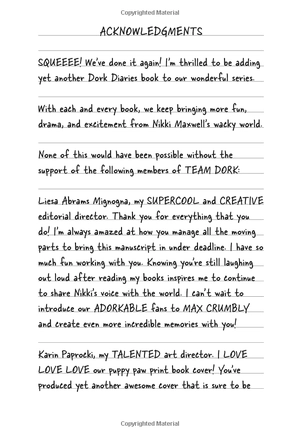 Copyrighted Material
ACKNOWLEDGMENTS
SQUEEEE! We've done it again! I'm thrilled to be adding
yet another Dork Diaries book to our wonderful series.
With each and every book, we keep bringing more fun,
drama, and excitement from Nikki Maxwell's wacky world.
None of this would have been possible without the
support of the following members of TEAM DORK:
Liesa Abrams Mignogna, my SUPERCOOL and CREATIVE
editorial director. Thank you for everything that you
do! I'm always amazed at how you manage all the moving
parts to bring this manuscript in under deadline. I have so
much fun working with you. Knowing you're still laughing
out loud after reading my books inspires me to continue
to share Nikki's voice with the world. I can't wait to
introduce our ADORKABLE fans to MAX CRUMBLY
and create even more incredible memories with you!
Karin Paprocki, my TALENTED art director. I LOVE
LOVE LOVE our puppy paw print book cover! You've
produced yet another awesome cover that is sure to be
Copyrighted Material